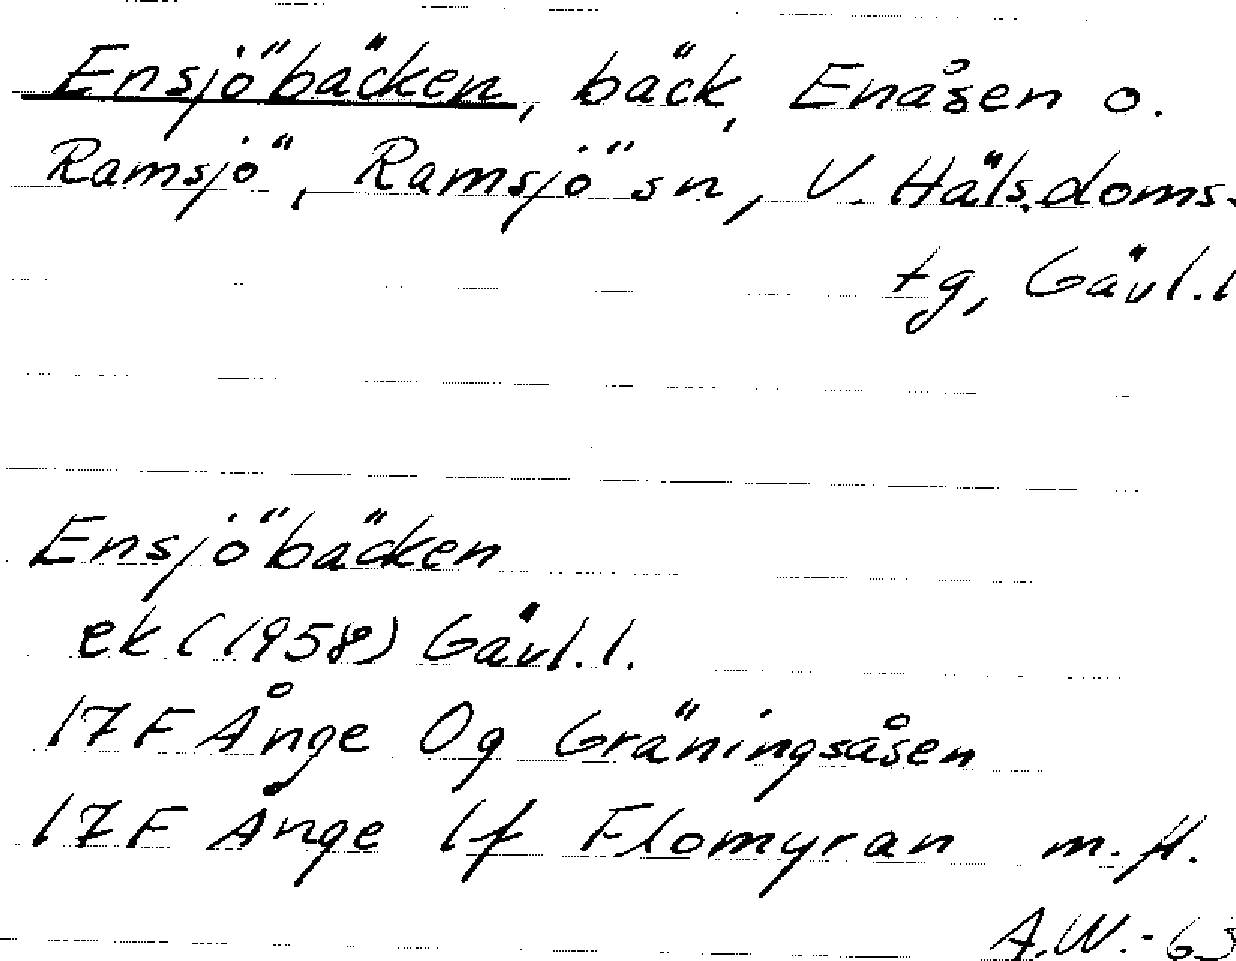 Ensjöbäcken, bäck, Enåsen o.
Ramsjö, Ramsjö sn, V. Häls. doms.
tg, Gävl.l
Ensjöbäcken
ek (1958) Gävl.l.
17F Ånge 0g Gräningsåsen
17F Ånge 1f Flomyran m.fl.
A.W.-63